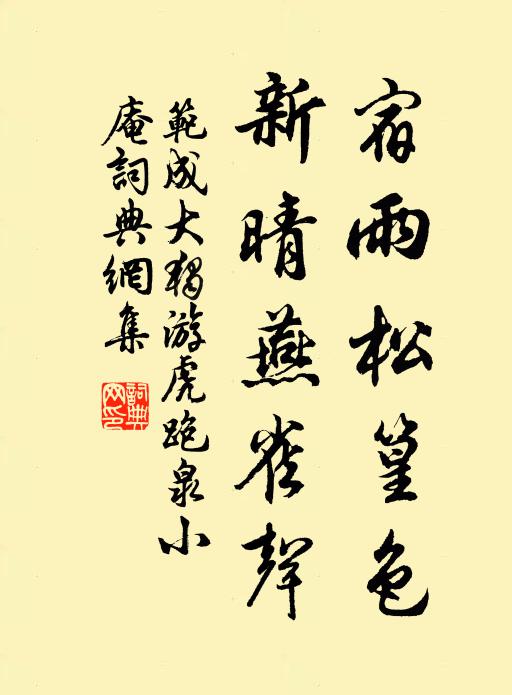 宿雨松篁色
新晴燕雀聲
範成大獨游虎跑泉小
庵詞典網集
詞典
网印